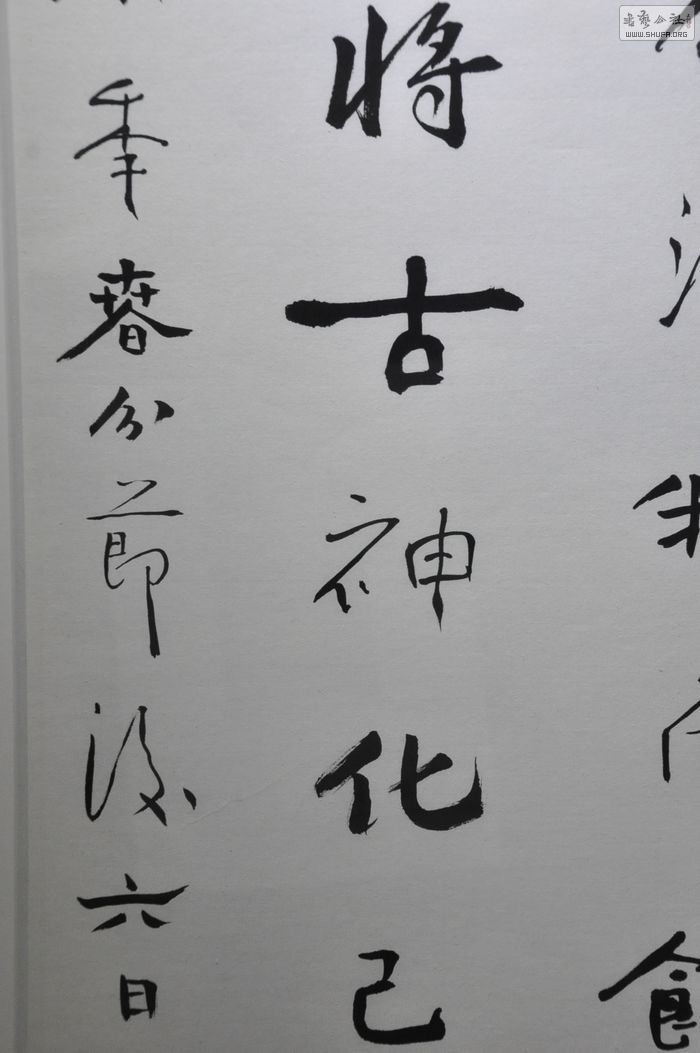 我
將古神化己
秊春分節後六日
書藝公社
WWW.SHUFA.ORG